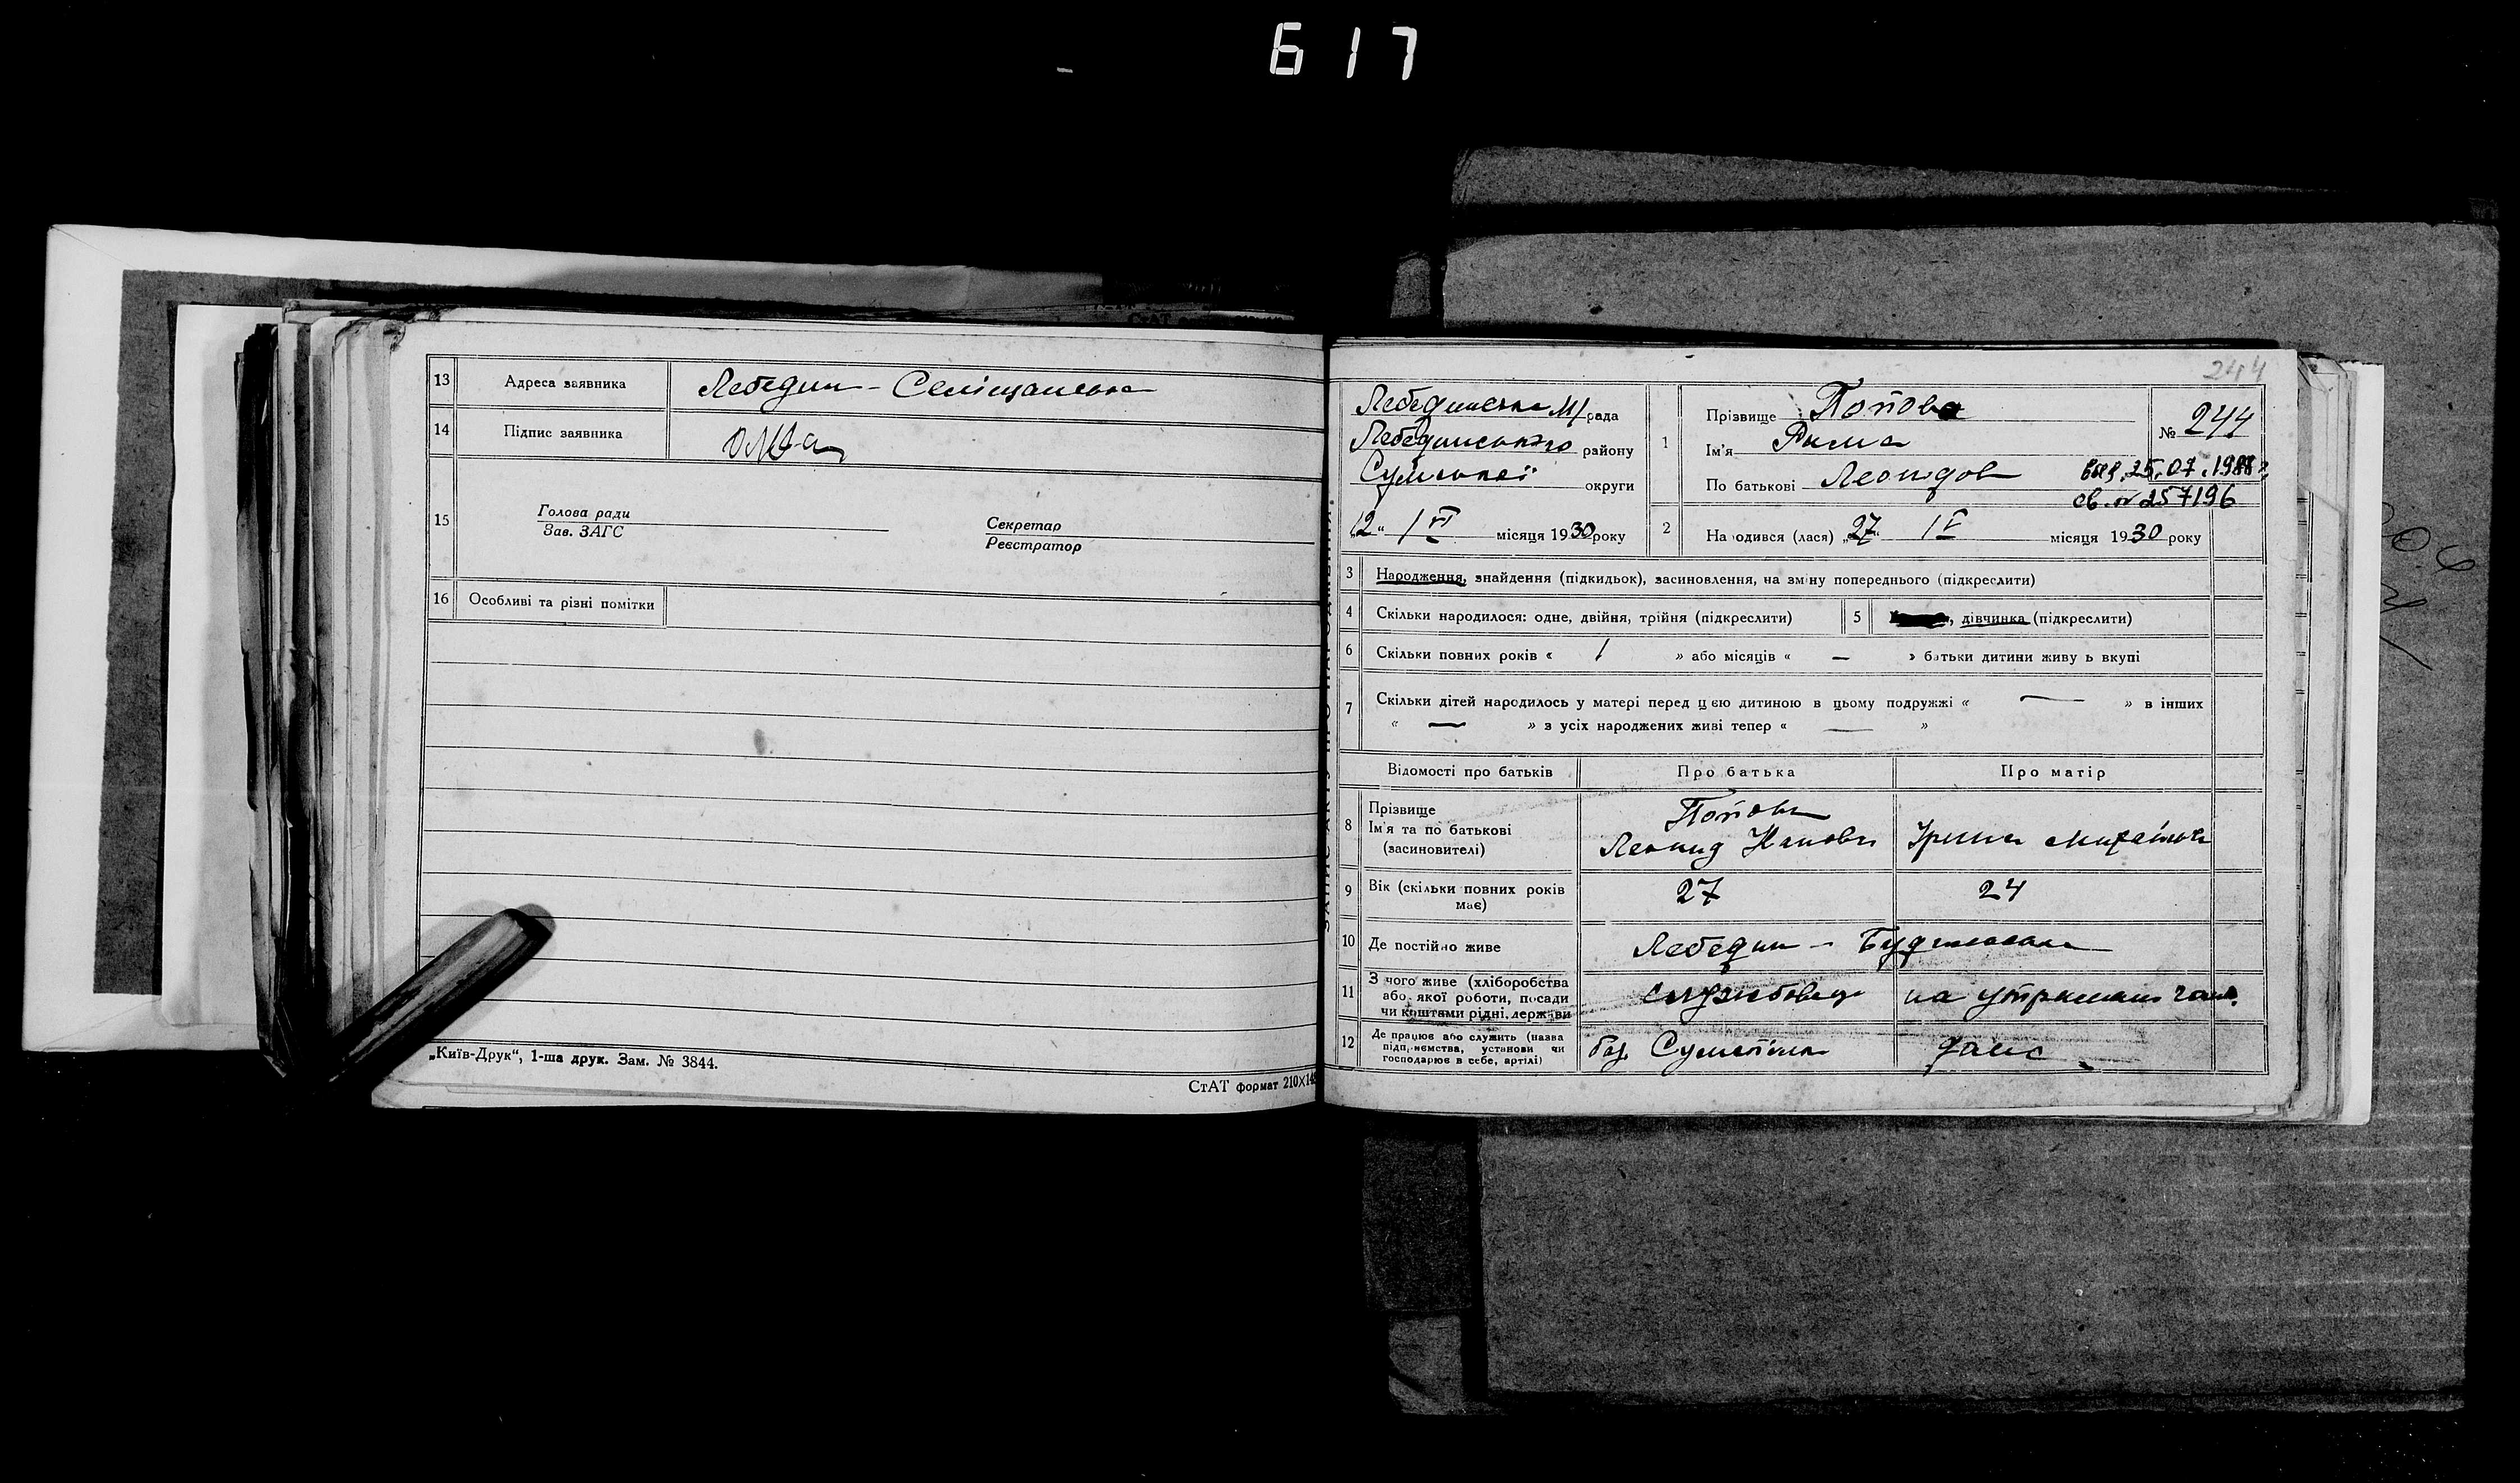 617
13 Адреса заявника Лебедин - Селіщанська
14 Підпис заявника
15 Голова ради Зав. ЗАГС Секретар Реєстратор
16 Особливі та різні помітки
„Київ-Друк“, 1-ша друк. Зам. № 3844.
СтАТ формат 210×14
244
Лебединська М/рада
Лебединського району
Сумської округи
„12“ / VI місяця 1930 року
1 Прізвище Попова
Ім'я Рима
По батькові Леонідов
№ 244
выд. 25.07.1988 г.
св. № 257196
2 На одився (лася) „27“ / V місяця 1930 року
3 Народження, знайдення (підкидьок), засиновлення, на зміну попереднього (підкреслити)
4 Скільки народилося: одне, двійня, трійня (підкреслити) 5 , дівчинка (підкреслити)
6 Скільки повних років « 1 » або місяців « — » батьки дитини живу ь вкупі
7 Скільки дітей народилось у матері перед цією дитиною в цьому подружжі « — » в інших
« — » з усіх народжених живі тепер « — »
Відомості про батьків Про батька Про матір
8 Прізвище
Ім'я та по батькові
(засиновителі)
Попов
Леонид Іванов
Ірина Михайлов
9 Вік (скільки повних років має) 27 24
10 Де постійно живе Лебедин -
11 З чого живе (хліборобства
або якої роботи, посади
чи коштами рідні, держави
службовець на утриман. чолов.
12 Де працює або служить (назва
підприємства, установи чи
господарює в себе, артілі)